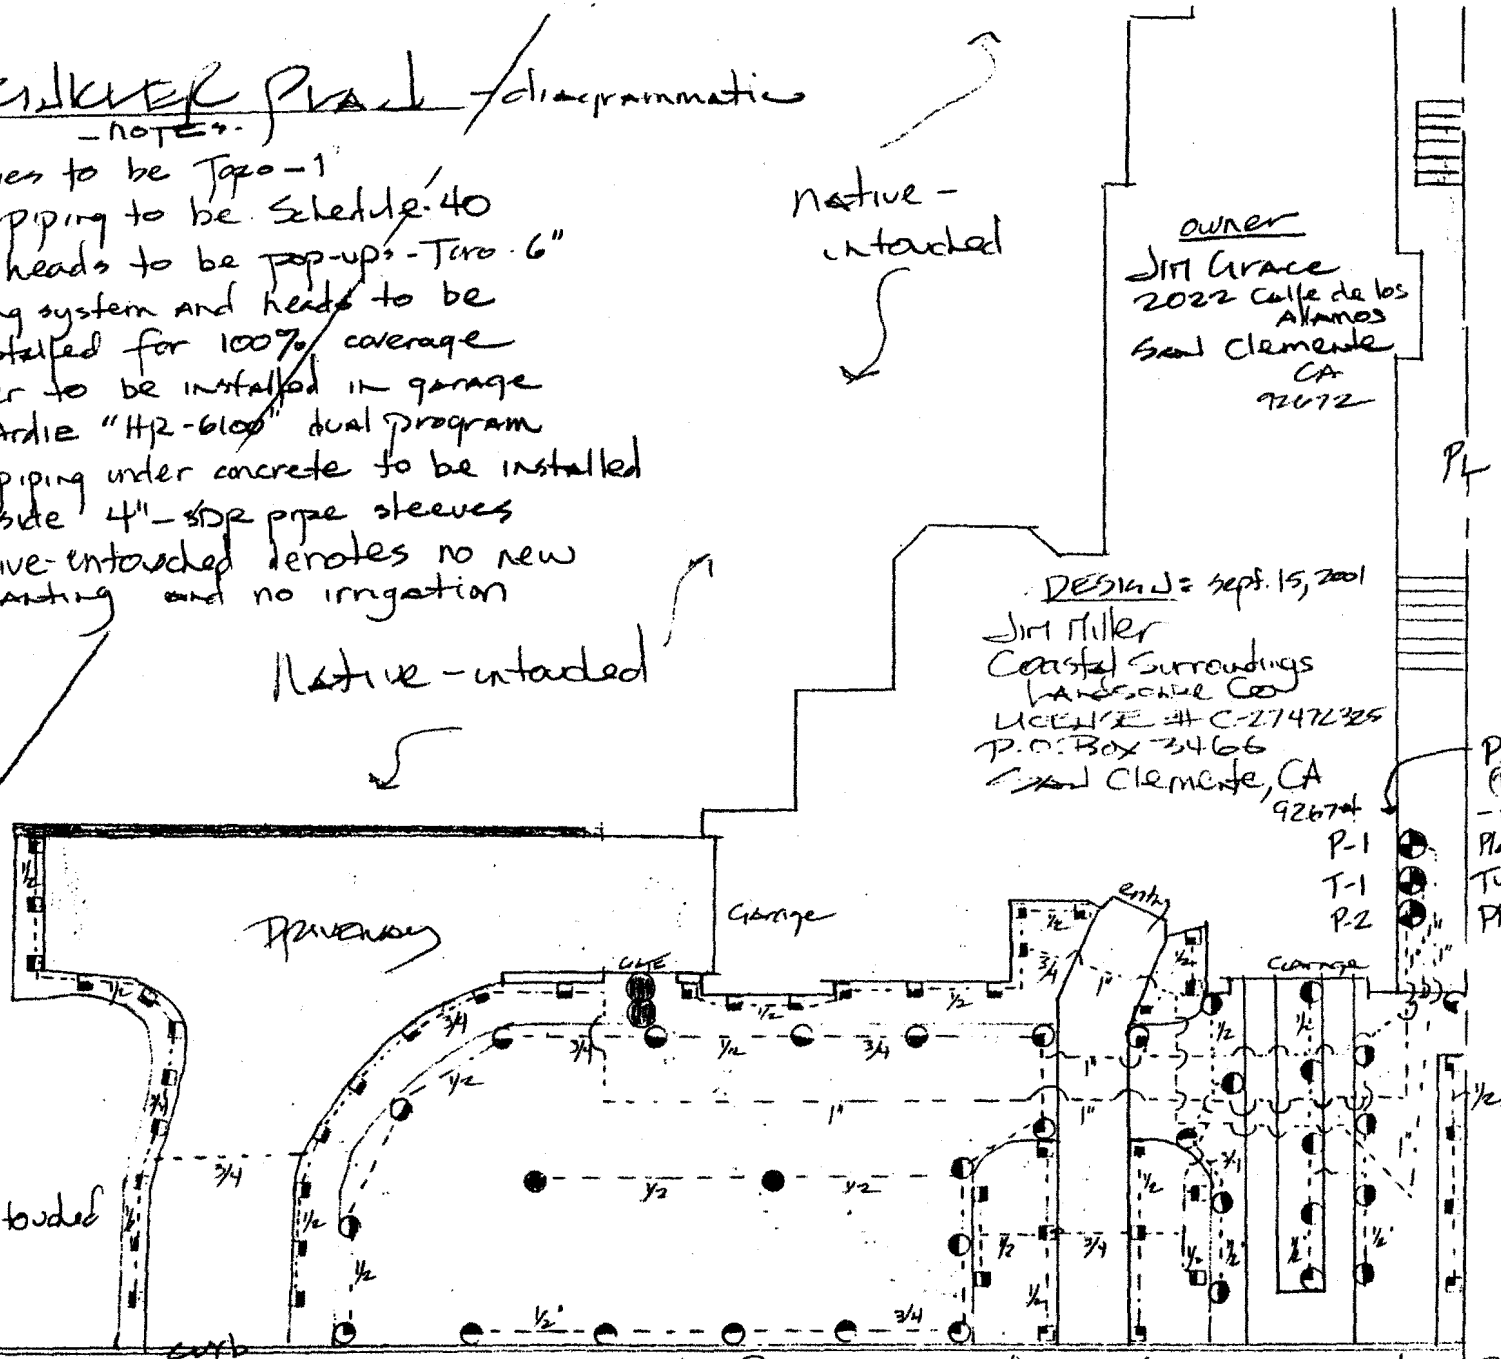 PLAN - diagrammatic
- NOTES -
to be Toro-1
piping to be Schedule 40
heads to be pop-ups - Toro 6"
system and heads to be
for 100% coverage
to be installed in garage
"HR-6100" dual program
piping under concrete to be installed
4" - SDR pipe sleeves
untouched denotes no new
and no irrigation
native -
untouched
owner
Jim Grace
2022 Calle de los
Alamos
San Clemente
CA
92672
PL
DESIGN: Sept. 15, 2001
Jim Miller
Coastal Surroundings
Landscape Co
LICENSE # C-27472325
P.O. Box 3466
San Clemente, CA
9267
Native - untouched
P-1
T-1
P-2
entry
DRIVEWAY
Garage
Garage
1/2
1/2
3/4
1/2
1"
1"
1/2
3/4
1/2
1/2
3/4
1/2
3/4
1/2
1/2
3/4
1"
1"
1"
1/2
3/4
3/4
1/2
1/2
1/2
1/2
1/2
1/2
3/4
1/2
1/2
1/2
1/2
1/2
1/2
3/4
1/2
curb